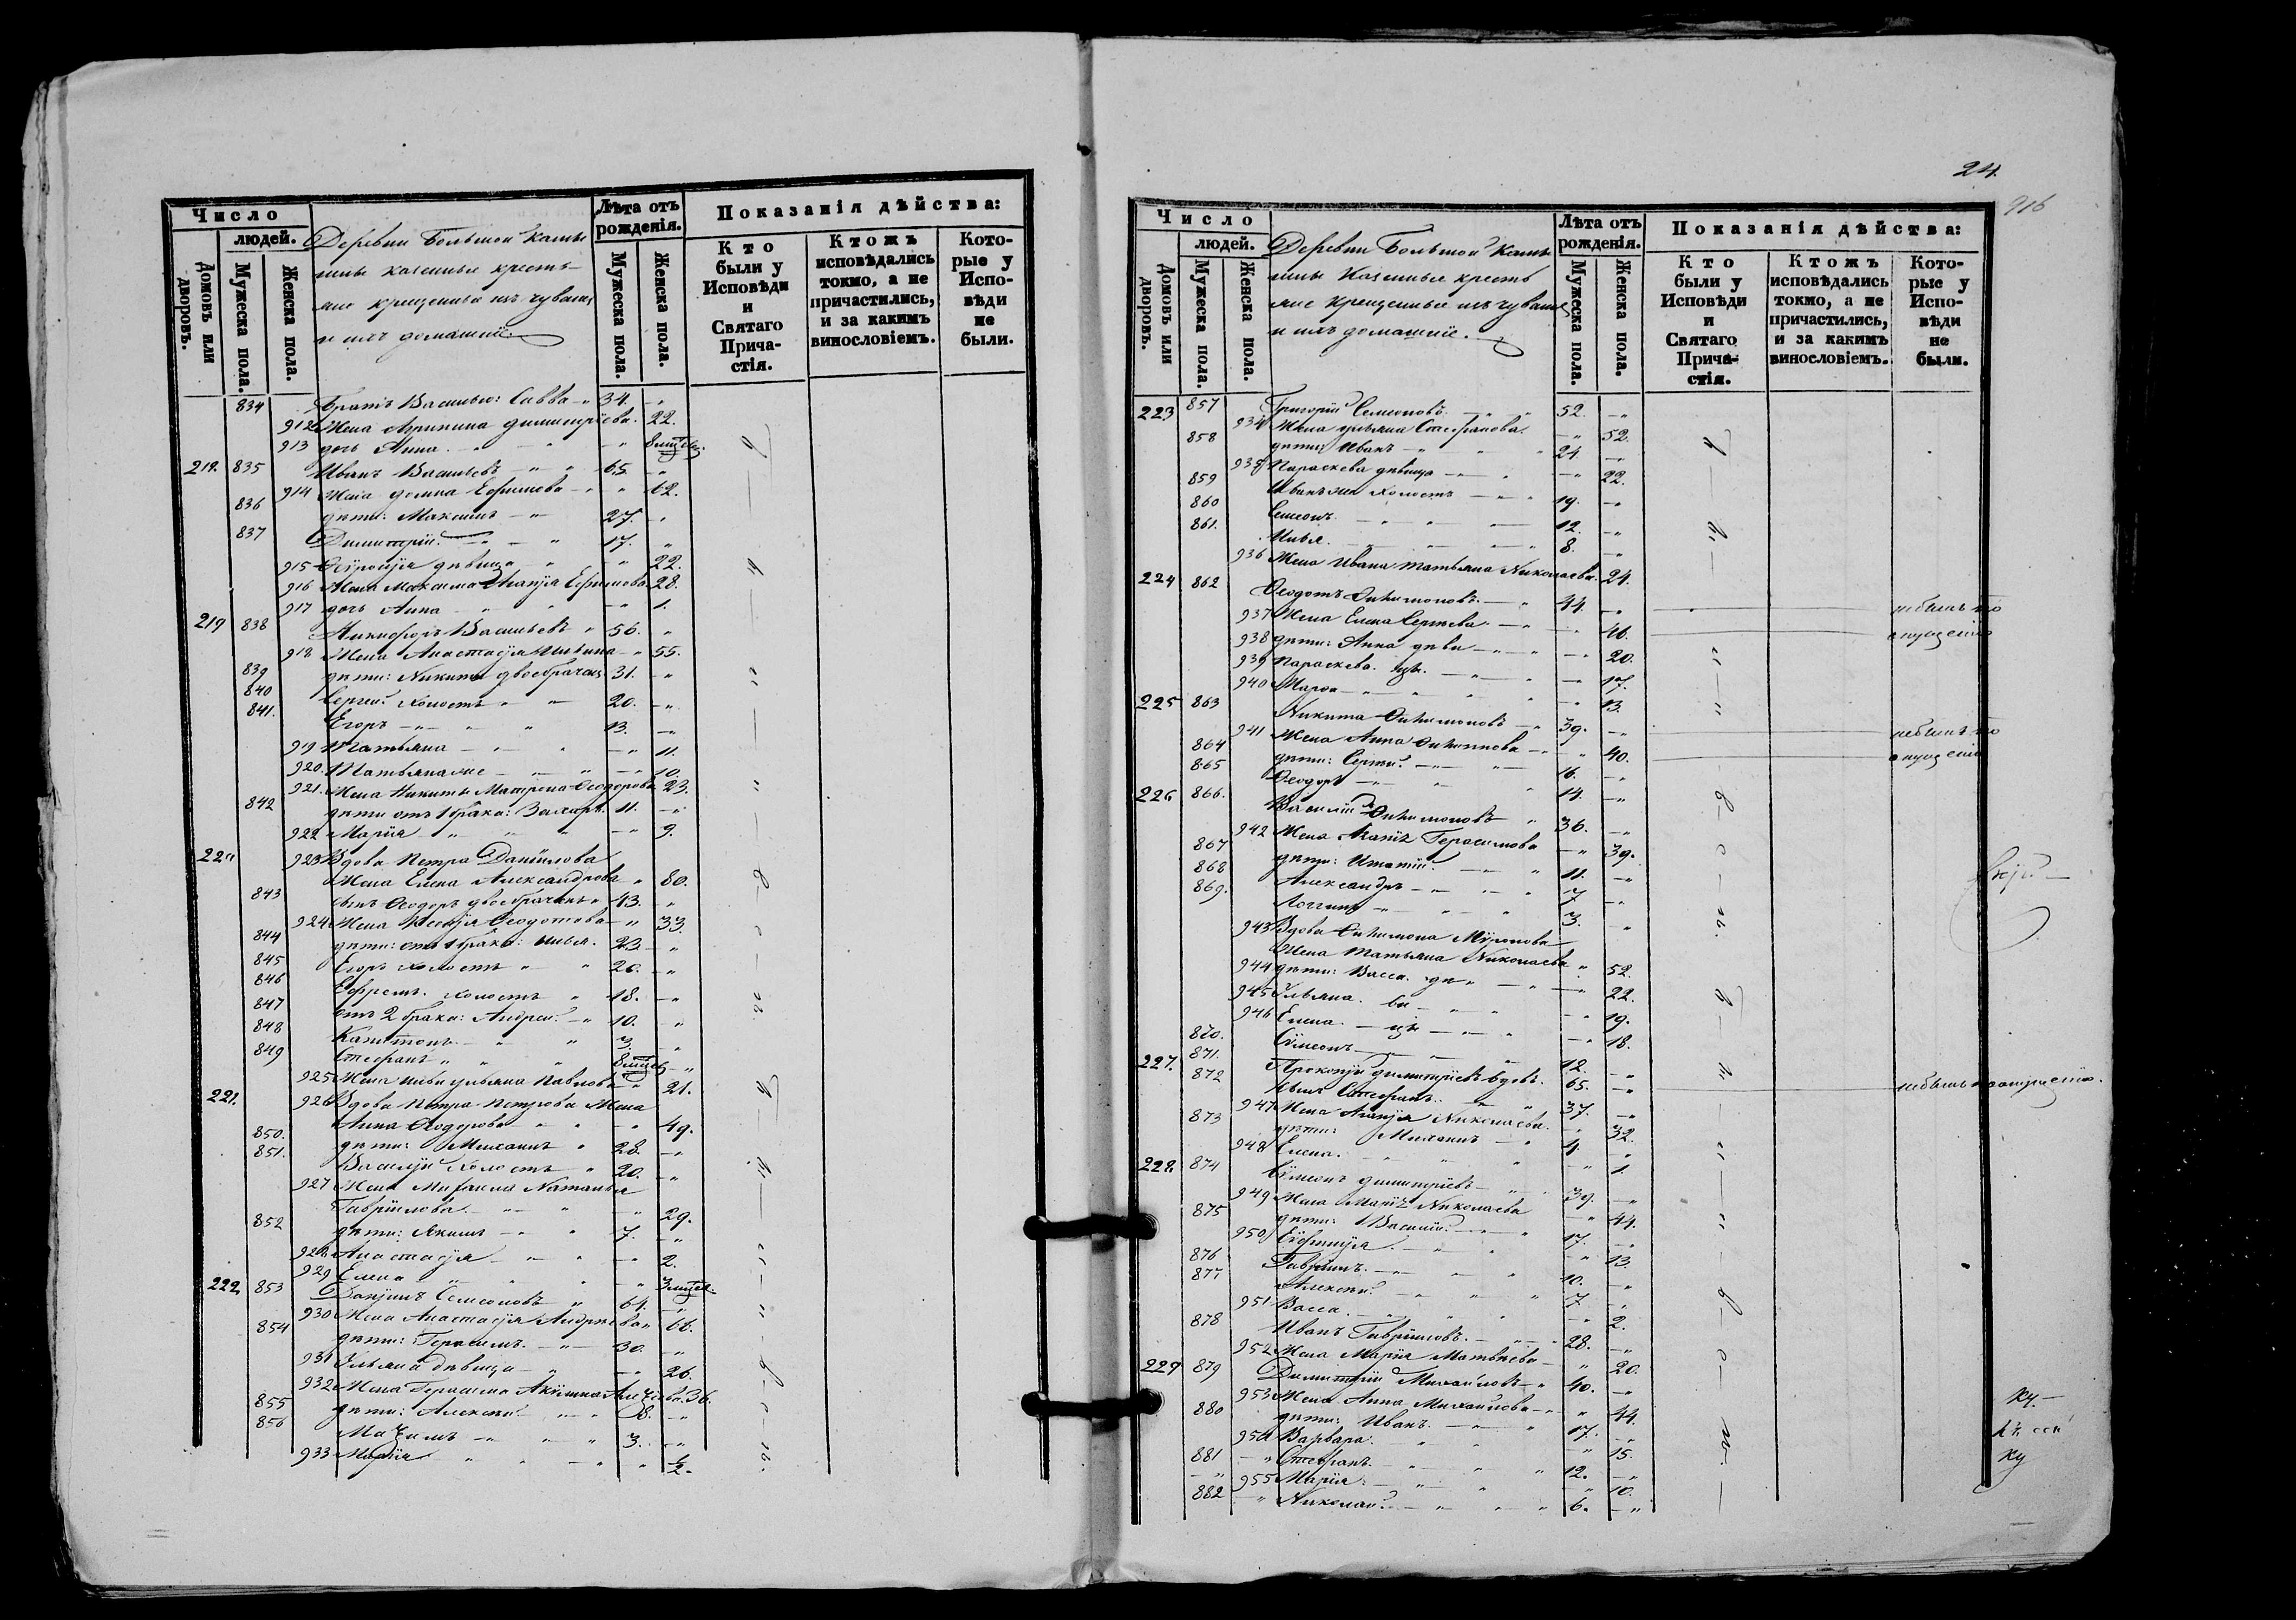 Число
людей.
Домовъ или дворовъ.
Мужеска пола.
Женска пола.
Деревни Большой Камы
шлы казенные кресть-
яне крещеные изъ чувашъ
и ихъ домашніе
Лѣта отъ рожденія.
Мужеска пола.
Женска пола.
Показанія дѣйства:
Кто были у Исповѣди и Святаго Прича-стія.
Ктожъ исповѣдались токмо, а не причастились, и за какимъ винословіемъ.
Кото-рые у Испо-вѣди не были.
834 Братъ Василью: Савва 34.
912 Жена Агрипина Димитріева 22.
913 дочь Анна 8 мѣсяц.
218. 835 Иванъ Васильевъ 65.
914 Жена Домна Ефимова 62.
836 дѣти: Максимъ 27.
837 Димитрій 17.
915 дѣвица 22.
916 Жена Максима Агапія Ефимова 28.
917 дочь Анна 1.
219 838 Никифоръ Васильевъ 56.
918 Жена Анастасія Ильина 55.
839 дѣти: Никита двоебрачен 31.
840 Сергей холостъ 20.
841. Егоръ 13.
919 Татьяна 11.
920. Татьяна же 10.
921. Жена Никиты Матрена Ѳеодорова 23.
842 дѣти отъ 1 брака: Захаръ 11.
922 Марія 9.
220 923 Вдова Петра Данилова
Жена Елена Александрова 80.
843 сынъ Ѳеодоръ двоебраченъ 43.
924 Жена Ксенія Ѳеодотова 33.
844 дѣти: отъ 1 брака: Илья. 23.
845 Егоръ холостъ 20.
846 Ефремъ холостъ 18.
847 отъ 2 брака: Андрей 10.
848 Капитонъ 3.
849 Стефанъ 8 мѣсяц
925 Жена Ильи Ульяна Павлова 21.
221. 926 Вдова Петра Петрова Жена
Анна Ѳеодорова 49.
850. дѣти: Михаилъ 28.
851. Василій холостъ 20.
927 Жена Михаила Наталья
Гаврилова 29.
852 дѣти: Якимъ 7.
928 Анастасія 2.
929 Елена 3 мѣсяц.
222 853 Даніилъ Семеоновъ 64.
930 Жена Анастасія Андреева 66.
854 дѣти: Герасимъ 30.
931 Ульяна дѣвица 26.
932 Жена Герасима Акулина Алексѣева 36.
855 дѣти: Алексѣй 8.
856 Максимъ 3.
933 Марія ½.
24.
916
Число
людей.
Домовъ или дворовъ.
Мужеска пола.
Женска пола.
Деревни Большой Камы
шлы Казенные кресть
яне крещеные изъ чувашъ
и ихъ домашніе.
Лѣта отъ рожденія.
Мужеска пола.
Женска пола.
Показанія дѣйства:
Кто были у Исповѣди и Святаго Прича-стія.
Ктожъ исповѣдались токмо, а не причастились, и за какимъ винословіемъ.
Кото-рые у Испо-вѣди не были.
223 857 Григорій Семеоновъ 52.
934 Жена Ульяна Стефанова 52.
858 дѣти: Иванъ 24.
935 Параскева дѣвица 22.
859 Иванъ же холостъ 19.
860 Семеонъ 12.
861. Илья. 8.
936 Жена Ивана Татьяна Николаева 24.
224 862 Ѳеодотъ Филимоновъ 44. небылъ по
937 Жена Елена Сергѣева 46. опущенію
938 дѣти: Анна дѣви 20.
939 Параскева. цы. 17.
940 Марѳа 13.
225 863 Никита Филимоновъ 39. небылъ по
941 Жена Анна Филиппова 40. опущенію
864 дѣти: Сергѣй 16.
865 Ѳеодоръ 14.
226 866. Василій Филимоновъ 36.
942 Жена Марія Герасимова 39.
867 дѣти: Игнатій 11.
868 Александръ 7
869. Логгинъ 3.
943 Вдова Филимона Миронова
Жена Татьяна Николаева 52.
944 дѣти: Васса. дѣ 22.
945 Ульяна. ви 19.
946 Елена. цы 18.
870. Симеонъ 12.
227. 871. Прокопій Димитріевъ вдовъ. 65. небылъ по опущенію.
872 сынъ Стефанъ 37.
947 Жена Агапія Николаева 32.
873 дѣти: Михаилъ 4.
948 Елена. 1.
228. 874 Симеонъ Димитріевъ 39.
949 Жена Марія Николаева 44.
875 дѣти: Василій 17.
950 Евфимія 13.
876 Гавріилъ 10.
877 Алексѣй 7
951 Васса. 2.
878 Иванъ Гавриловъ 28.
952 Жена Марія Матвѣева 20.
229 879 Димитрій Михайловъ 40.
953 Жена Анна Михайлова 44.
880 дѣти: Иванъ 17.
954 Варвара 15.
881 Стефанъ 12.
955 Марія 10.
882 Николай 6.